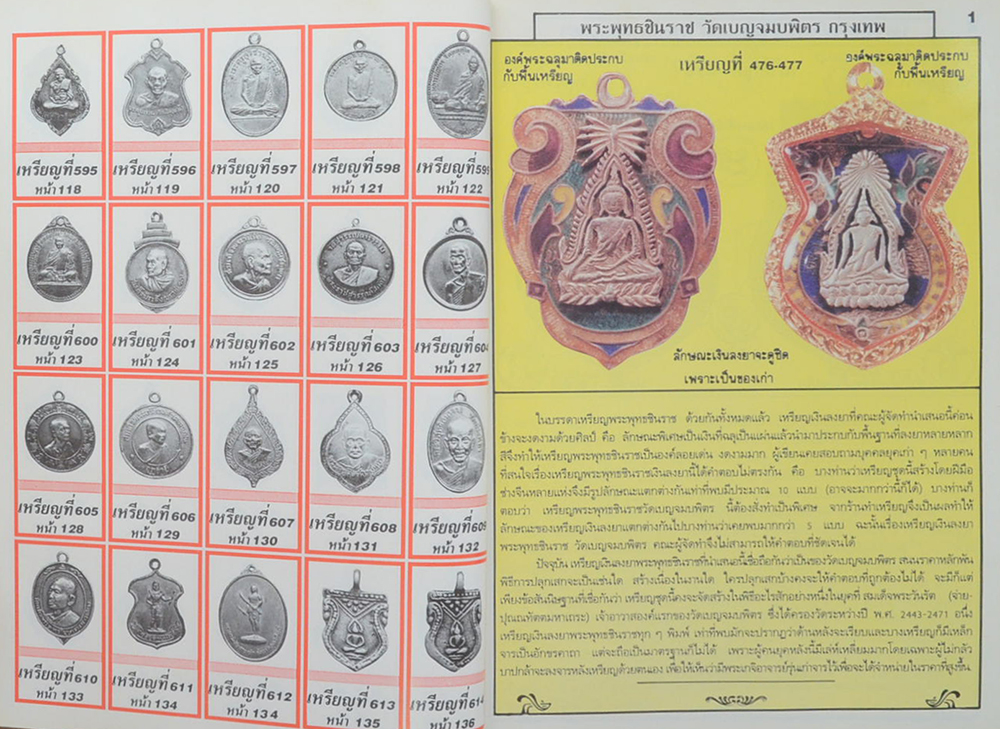 เหรียญที่595
หน้า 118
เหรียญที่596
หน้า 119
เหรียญที่597
หน้า 120
เหรียญที่598
หน้า 121
เหรียญที่599
หน้า 122
เหรียญที่600
หน้า 123
เหรียญที่ 601
หน้า 124
เหรียญที่602
หน้า 125
เหรียญที่603
หน้า 126
เหรียญที่604
หน้า 127
เหรียญที่605
หน้า 128
เหรียญที่606
หน้า 129
เหรียญที่607
หน้า 130
เหรียญที่608
หน้า 131
เหรียญที่609
หน้า 132
เหรียญที่610
หน้า 133
เหรียญที่611
หน้า 134
เหรียญที่612
หน้า 134
เหรียญที่613
หน้า 135
เหรียญที่614
หน้า 136
1
พระพุทธชินราช วัดเบญจมบพิตร กรุงเทพ
องค์พระฉลุมาติดประกบ
กับพื้นเหรียญ
เหรียญที่ 476-477
องค์พระฉลุมาติดประกบ
กับพื้นเหรียญ
ลักษณะเงินลงยาจะดูซีด
เพราะเป็นของเก่า
ในบรรดาเหรียญพระพุทธชินราช ด้วยกันทั้งหมดแล้ว เหรียญเงินลงยาที่คณะผู้จัดทำนำเสนอนี้ค่อน
ข้างจะงดงามด้วยศิลป์ คือ ลักษณะพิเศษเป็นเงินที่ฉลุเป็นแผ่นแล้วนำมาประกบกับพื้นฐานที่ลงยาหลายหลาก
สีจึงทำให้เหรียญพระพุทธชินราชเป็นองค์ลอยเด่น งดงามมาก ผู้เขียนเคยสอบถามบุคคลยุคเก่า ๆ หลายคน
ที่สนใจเรื่องเหรียญพระพุทธชินราชเงินลงยานี้ได้คำตอบไม่ตรงกัน คือ บางท่านว่าเหรียญชุดนี้สร้างโดยฝีมือ
ช่างจีนหลายแห่งจึงมีรูปลักษณะแตกต่างกันเท่าที่พบมีประมาณ 10 แบบ (อาจจะมากกว่านี้ก็ได้) บางท่านก็
ตอบว่า เหรียญพระพุทธชินราชวัดเบญจมบพิตร นี้ต้องสั่งทำเป็นพิเศษ จากร้านทำเหรียญจึงเป็นผลทำให้
ลักษณะของเหรียญเงินลงยาแตกต่างกันไปบางท่านว่าเคยพบมากกว่า 5 แบบ ฉะนั้นเรื่องเหรียญเงินลงยา
พระพุทธชินราช วัดเบญจมบพิตร คณะผู้จัดทำจึงไม่สามารถให้คำตอบที่ชัดเจนได้
ปัจจุบัน เหรียญเงินลงยาพระพุทธชินราชที่นำเสนอนี้เชื่อถือกันว่าเป็นของวัดเบญจมบพิตร สนนราคาหลักพัน
พิธีการปลุกเสกจะเป็นเช่นใด สร้างเนื่องในงานใด ใครปลุกเสกบ้างคงจะให้คำตอบที่ถูกต้องไม่ได้ จะมีก็แต่
เพียงข้อสันนิษฐานที่เชื่อกันว่า เหรียญชุดนี้คงจะจัดสร้างในพิธีอะไรสักอย่างหนึ่งในยุคที่ สมเด็จพระวันรัต (จ่าย-
ปุณณทัตตมหาเถระ) เจ้าอาวาสองค์แรกของวัดเบญจมบพิตร ซึ่งได้ครองวัดระหว่างปี พ.ศ. 2443-2471 อนึ่ง
เหรียญเงินลงยาพระพุทธชินราชทุก ๆ พิมพ์ เท่าที่พบมักจะปรากฏว่าด้านหลังจะเรียบและบางเหรียญก็มีเหล็ก
จารเป็นอักขรคาถา แต่จะถือเป็นมาตรฐานก็ไม่ได้ เพราะผู้คนยุคหลังนี้มีเล่ห์เหลี่ยมมากโดยเฉพาะผู้ไม่กลัว
บาปกล้าจะลงจารหลังเหรียญด้วยตนเอง เพื่อให้เห็นว่ามีพระเกจิอาจารย์รุ่นเก่าจารไว้เพื่อจะได้จำหน่ายในราคาที่สูงขึ้น